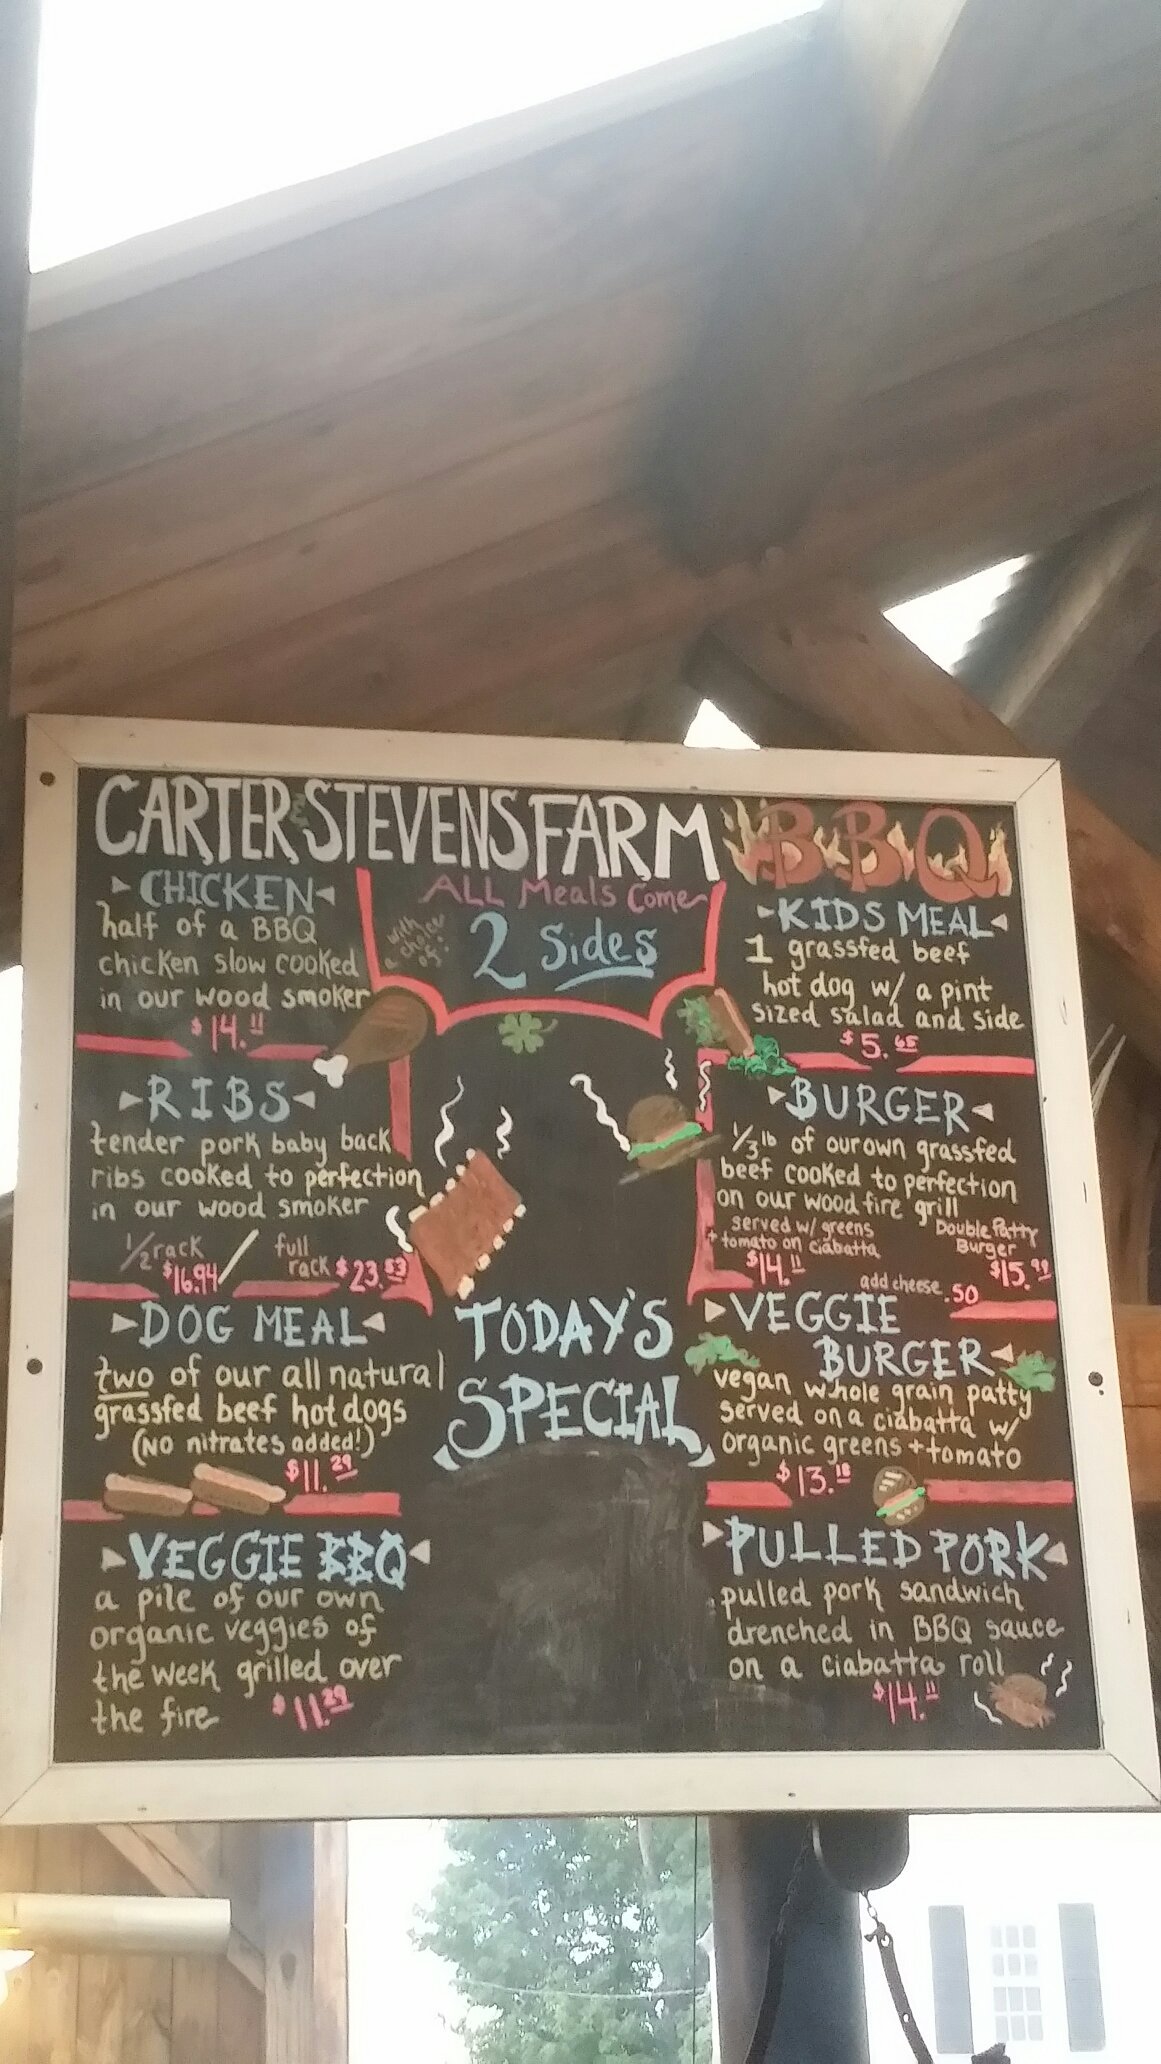 CARTER & STEVENS FARM BBQ
CHICKEN
half of a BBQ
chicken slow cooked
in our wood smoker
$14.11
RIBS
tender pork baby back
ribs cooked to perfection
in our wood smoker
1/2 rack
$16.94
full
rack $23.53
DOG MEAL
two of our all natural
grassfed beef hot dogs
(NO nitrates added!)
$11.29
VEGGIE BBQ
a pile of our own
organic veggies of
the week grilled over
the fire $11.29
ALL Meals Come
with
a choice
of:
2 Sides
TODAY'S
SPECIAL
KIDS MEAL
1 grassfed beef
hot dog w/ a pint
sized salad and side
$5.65
BURGER
1/3 lb of our own grassfed
beef cooked to perfection
on our wood fire grill
served w/ greens
+ tomato on ciabatta
$14.11
Double Patty
Burger
$15.99
add cheese .50
VEGGIE
BURGER
vegan whole grain patty
served on a ciabatta w/
organic greens + tomato
$13.18
PULLED PORK
pulled pork sandwich
drenched in BBQ sauce
on a ciabatta roll
$14.11